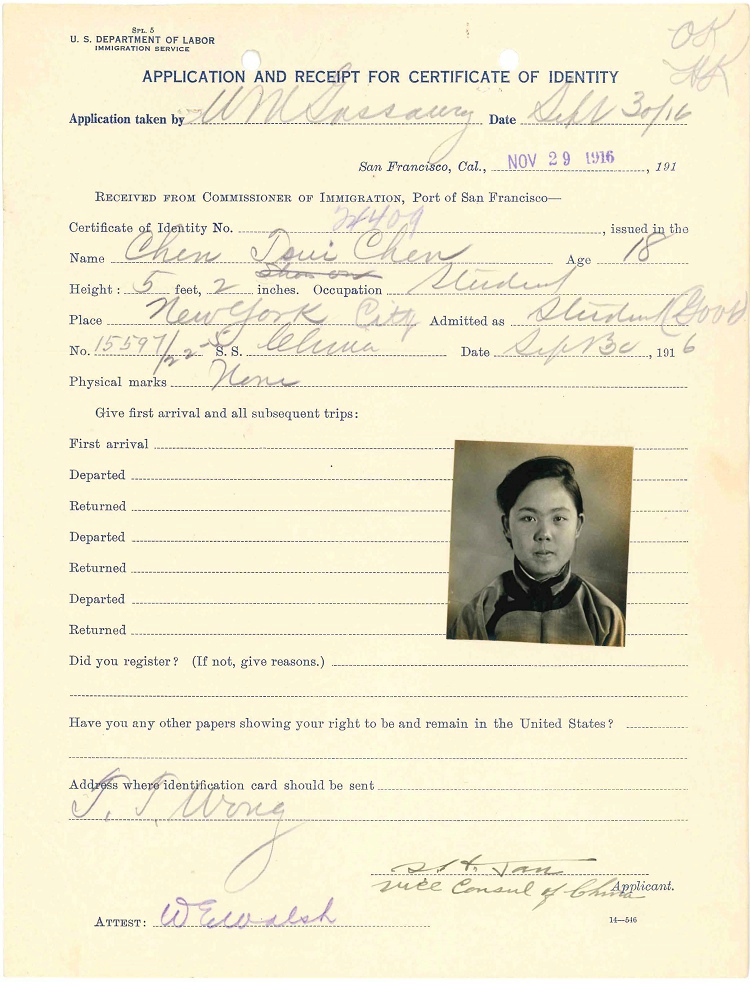 SPL. 5
U. S. DEPARTMENT OF LABOR
IMMIGRATION SERVICE
OK
APPLICATION AND RECEIPT FOR CERTIFICATE OF IDENTITY
Application taken by W M Date Sept 30/16
San Francisco, Cal., NOV 29 1916, 191
RECEIVED FROM COMMISSIONER OF IMMIGRATION, Port of San Francisco—
Certificate of Identity No. 24409, issued in the
Name Chen Tsui Chen Age 18
Height: 5 feet, 2 inches. Occupation Student
Place New York City Admitted as Student (Gov)
No. 15597/22-5 S. S. China Date Sep 30, 1916
Physical marks None
Give first arrival and all subsequent trips:
First arrival
Departed
Returned
Departed
Returned
Departed
Returned
Did you register? (If not, give reasons.)
Have you any other papers showing your right to be and remain in the United States?
Address where identification card should be sent
T. T. Wong
Tan
Vice Consul of China Applicant.
ATTEST: W E Walsh
14—546